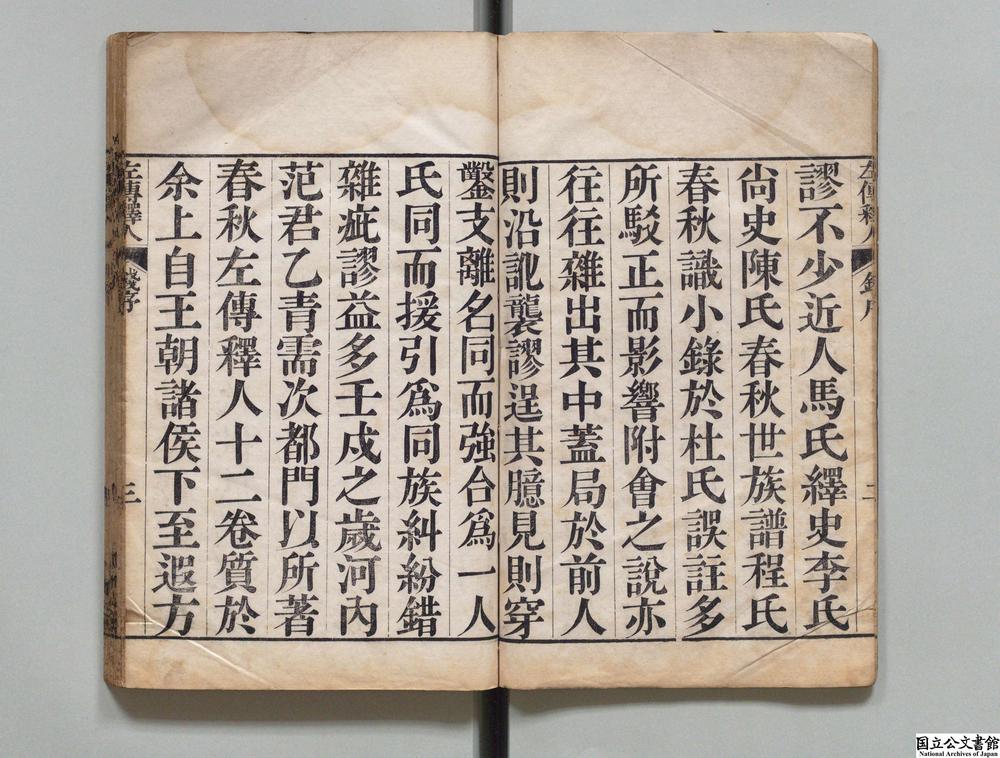 謬不少近人馬氏繹史李氏
尙史陳氏春秋世族譜程氏
春秋識小錄於杜氏誤註多
所駁正而影響附會之說亦
往往雜出其中蓋局於前人
則沿訛襲謬逞其臆見則穿
鑿支離名同而強合爲一人
氏同而援引爲同族糾紛錯
雜疵謬益多壬戍之歲河內
范君乙青需次都門以所著
春秋左傳釋人十二卷質於
余上自王朝諸侯下至遐方
左傳釋人
錢序
三
国立公文書館
National Archives of Japan